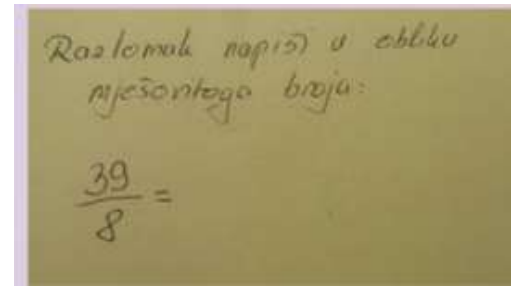 Razlomak napiši u obliku
mješovitoga broja:
39/8 =